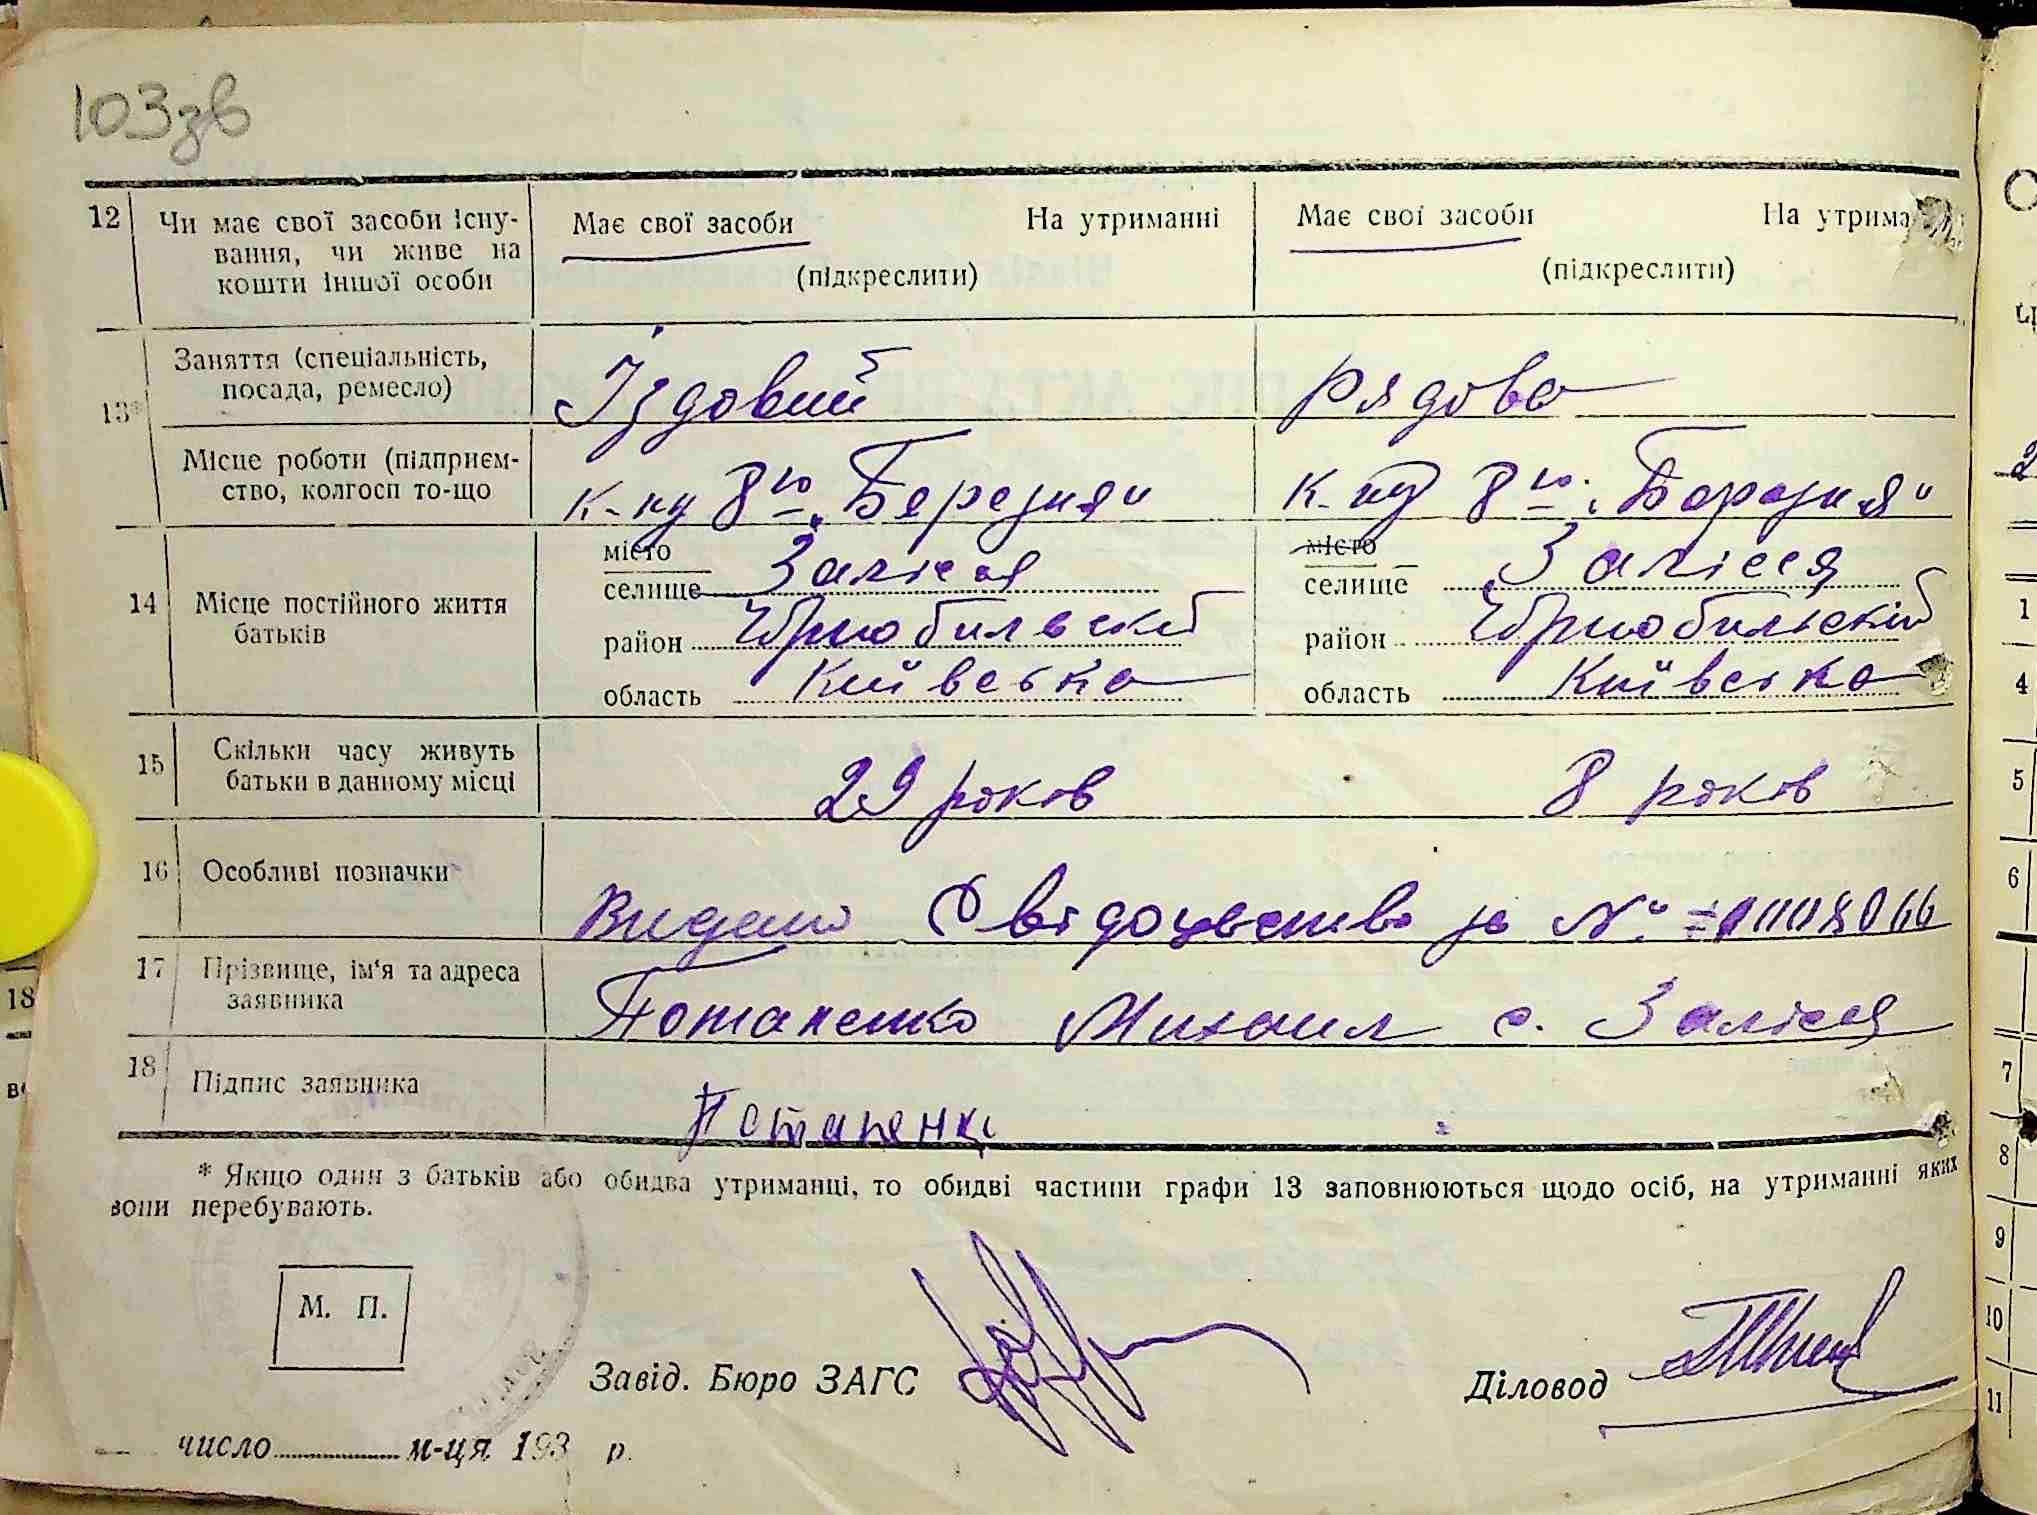 103зв
12 Чи має свої засоби існу- Має свої засоби На утриманні Має свої засоби На утрима
вання, чи живе на
кошти іншої особи (підкреслити) (підкреслити)
13* Заняття (спеціальність,
посада, ремесло) Їздовий Рядова
Місце роботи (підприєм-
ство, колгосп то-що к-пу 8го „Березня" к-пу 8го „Березня"
14 Місце постійного життя
батьків
місто місто
селище Залісся селище Залісся
район Чорнобильский район Чорнобильский
область Київська область Київська
15 Скільки часу живуть
батьки в данному місці 29 років 8 років
16 Особливі позначки
Видано Свідоцвство за №
17 Прізвище, ім'я та адреса
заявника Потапенко Михаил с. Залісся
18 Підпис заявника
Потапенко
* Якщо один з батьків або обидва утриманці, то обидві частини графи 13 заповнюються щодо осіб, на утриманні яких
вони перебувають.
М. П.
Завід. Бюро ЗАГС Діловод
число м-ця 193 р.
18
2
1
4
5
6
7
8
9
10
11